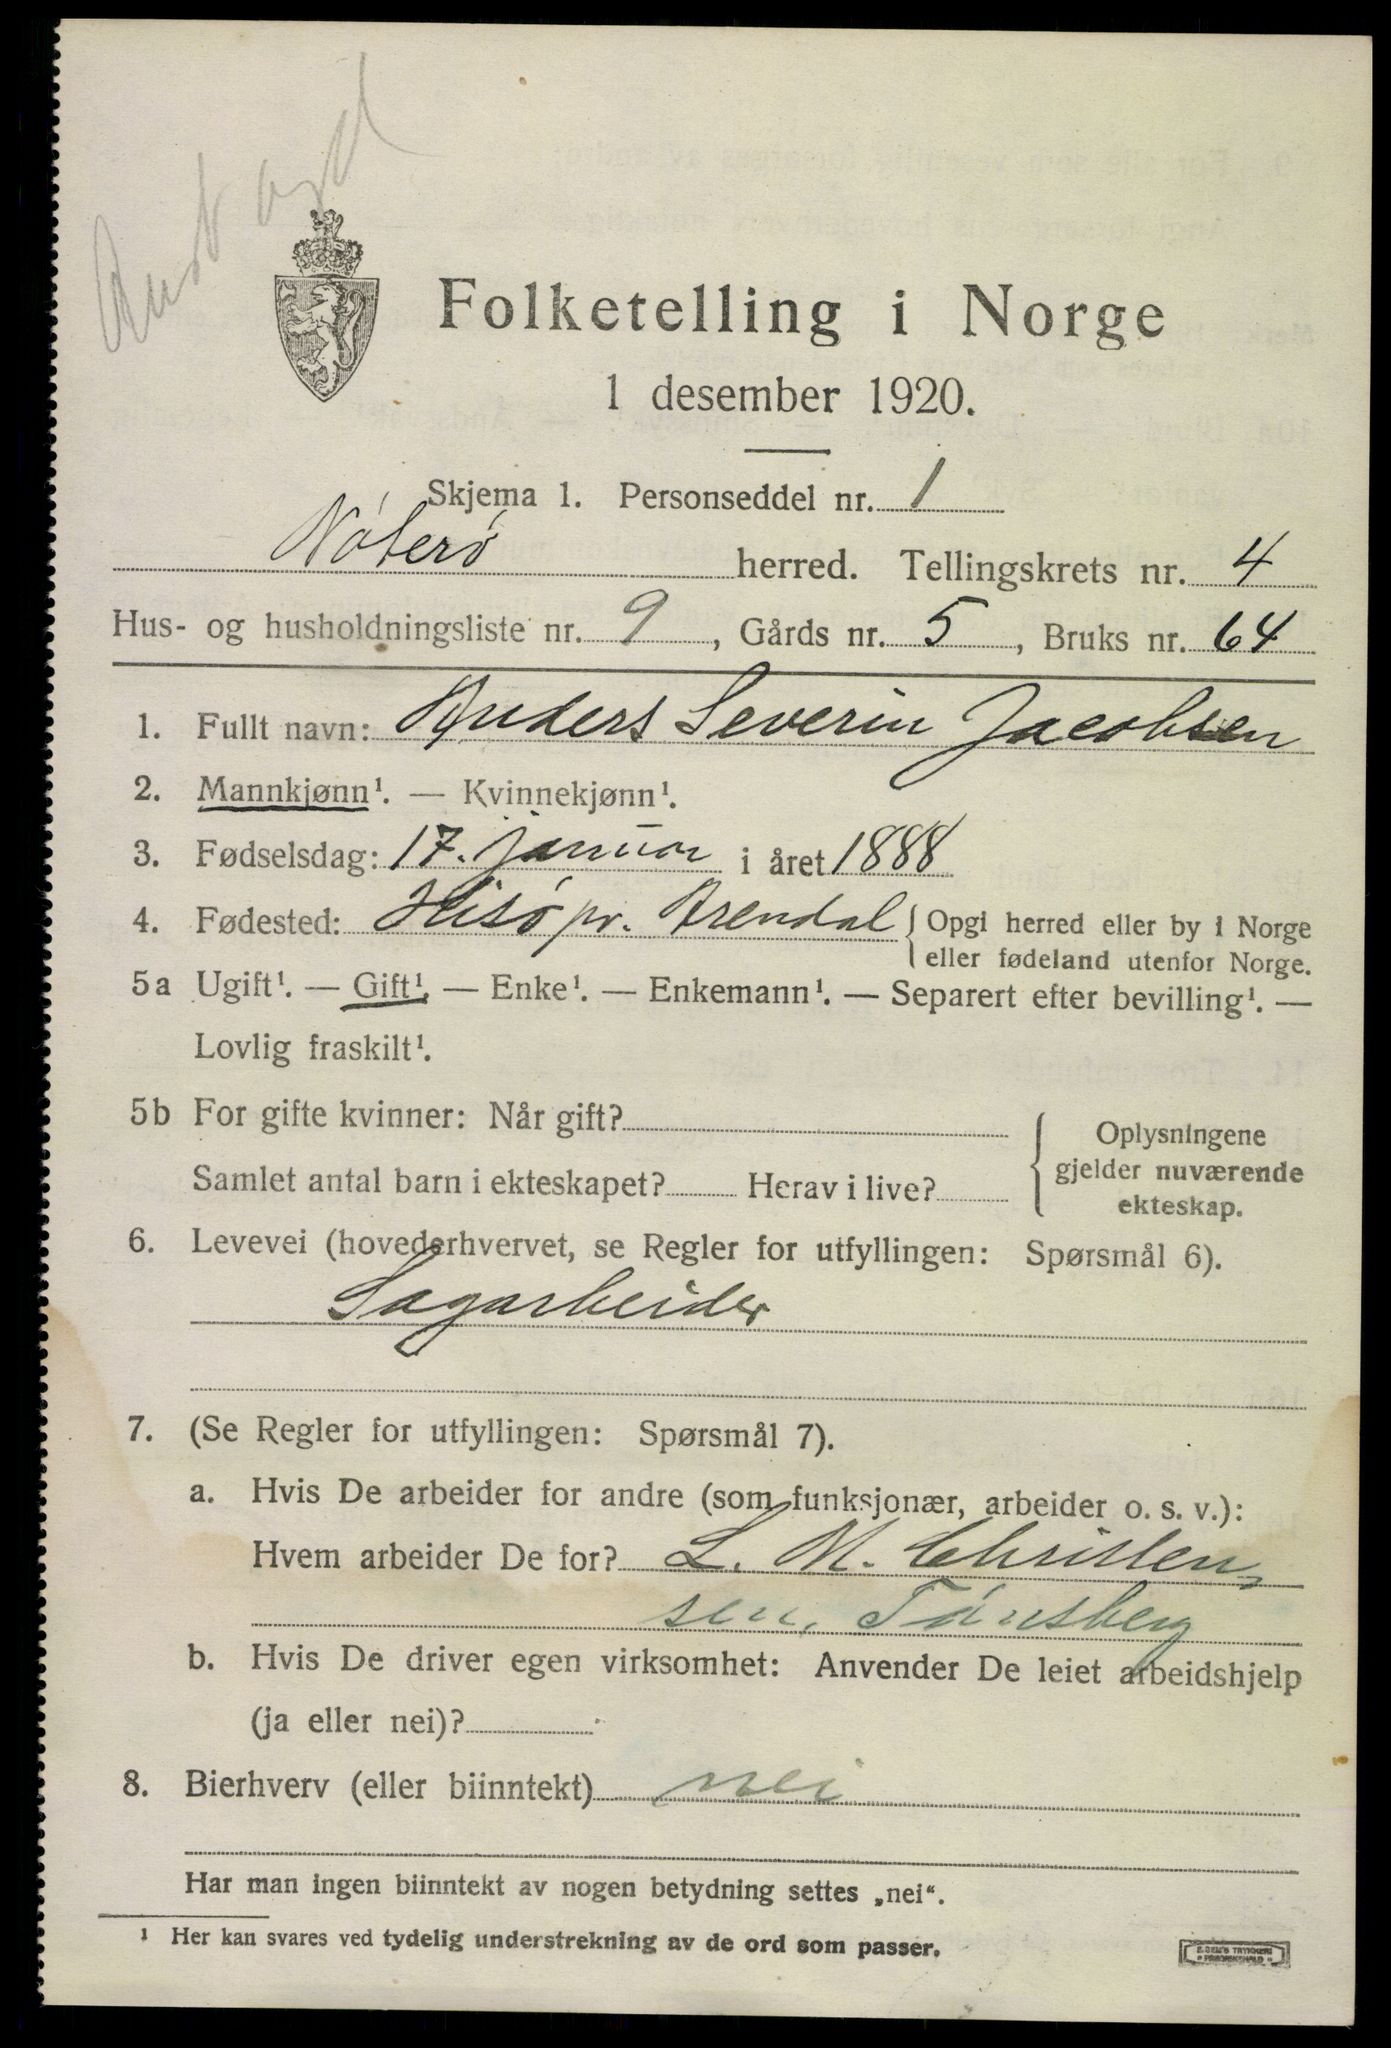 Rustad
Folketelling i Norge
1 desember 1920.
Skjema 1. Personseddel nr. 1
Nøterø herred. Tellingskrets nr. 4
Hus- og husholdningsliste nr. 9, Gårds nr. 5, Bruks nr. 64
1. Fullt navn: Anders Severin Jacobsen
2. Mannkjønn¹. — Kvinnekjønn¹.
3. Fødselsdag: 17. januar i året 1888
4. Fødested: Hisø pr. Arendal { Opgi herred eller by i Norge
eller fødeland utenfor Norge.
5a Ugift¹. — Gift¹. — Enke¹. — Enkemann¹. — Separert efter bevilling¹. —
Lovlig fraskilt¹.
5b For gifte kvinner: Når gift?
Samlet antal barn i ekteskapet? Herav i live?
{ Oplysningene
gjelder nuværende
ekteskap.
6. Levevei (hovederhvervet, se Regler for utfyllingen: Spørsmål 6).
Sagarbeider
7. (Se Regler for utfyllingen: Spørsmål 7).
a. Hvis De arbeider for andre (som funksjonær, arbeider o. s. v.):
Hvem arbeider De for? L. M. Christen-
sen, Tønsberg
b. Hvis De driver egen virksomhet: Anvender De leiet arbeidshjelp
(ja eller nei)?
8. Bierhverv (eller biinntekt) nei
Har man ingen biinntekt av nogen betydning settes „nei“.
¹ Her kan svares ved tydelig understrekning av de ord som passer.
E. SEM'S TRYKKERI
FREDRIKSHALD